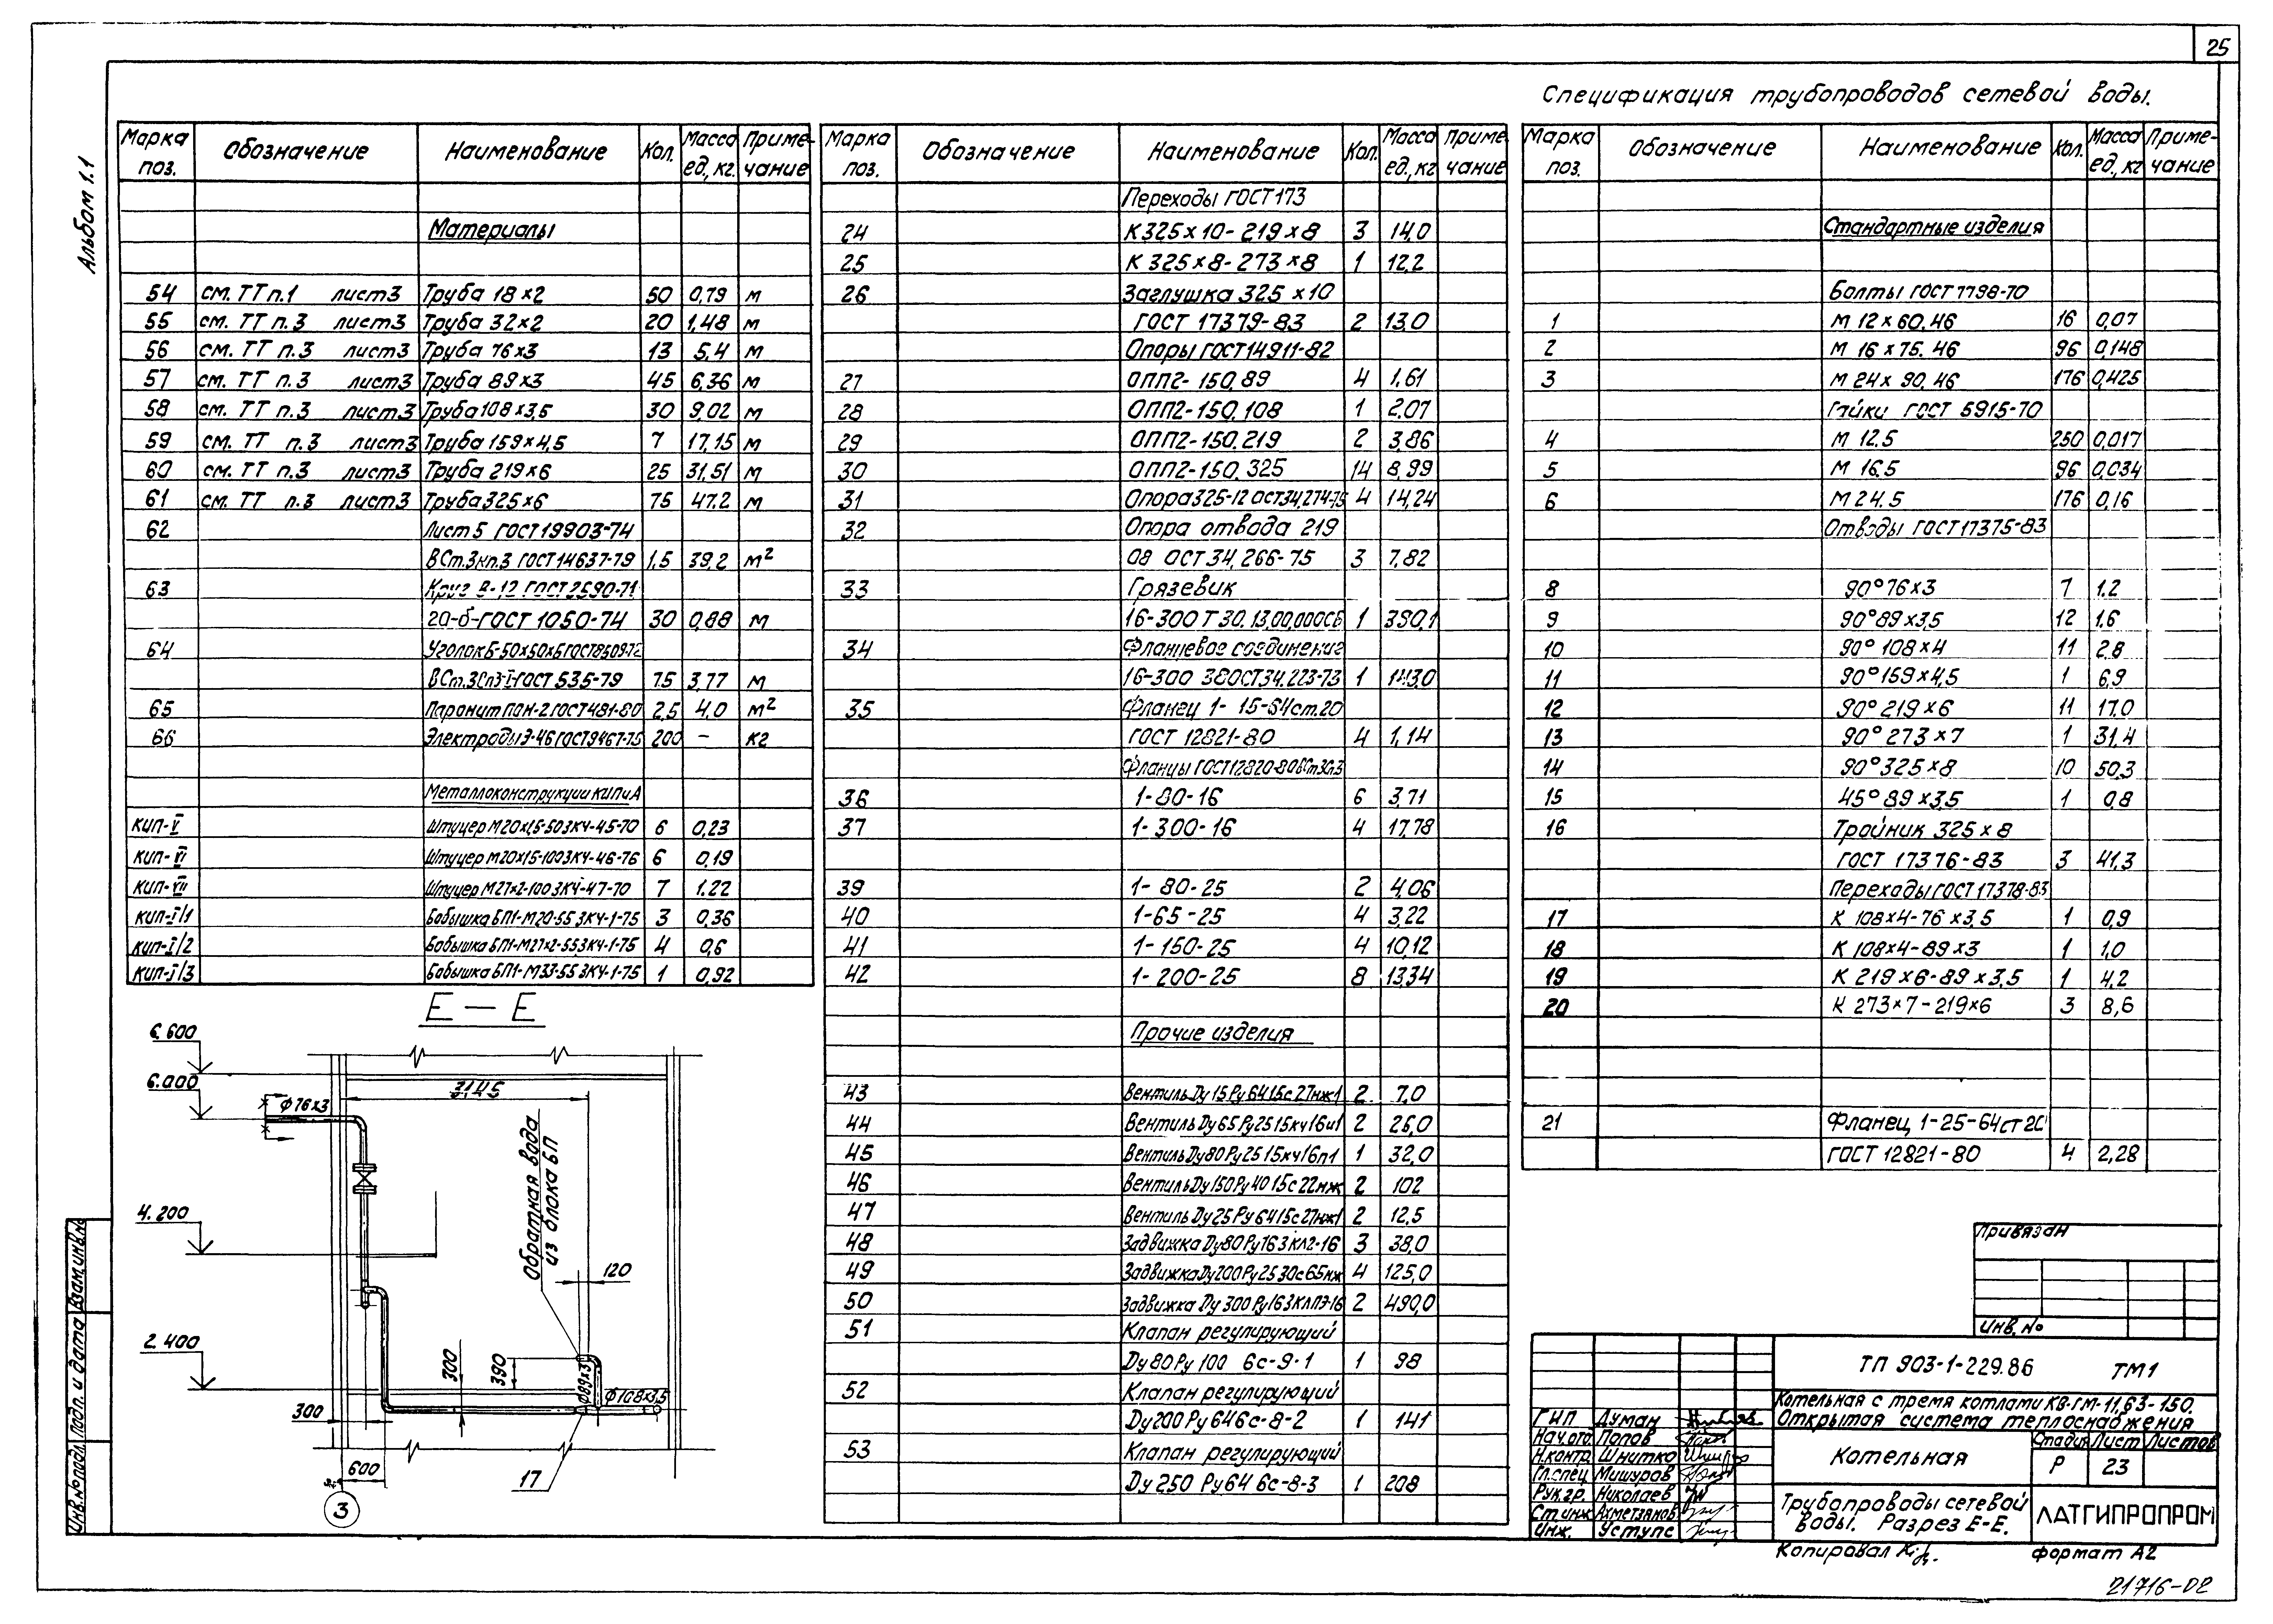 25
Альбом 1.1
Спецификация трубопроводов сетевой воды.
Марка поз. Обозначение Наименование Кол. Масса ед., кг. Примечание
Материалы
54 см. ТТ п.1 лист3 Труба 18×2 50 0,79 м
55 см. ТТ п.3 лист3 Труба 32×2 20 1,48 м
56 см. ТТ п.3 лист3 Труба 76×3 13 5,4 м
57 см. ТТ п.3 лист3 Труба 89×3 45 6,36 м
58 см. ТТ п.3 лист3 Труба 108×3,5 30 9,02 м
59 см. ТТ п.3 лист3 Труба 159×4,5 7 17,15 м
60 см. ТТ п.3 лист3 Труба 219×6 25 31,51 м
61 см. ТТ п.3 лист3 Труба 325×6 75 47.2 м
62 Лист 5 ГОСТ 19903-74
ВСт.3кп.3 ГОСТ 14637-79 1,5 39,2 м²
63 Круг В-12 ГОСТ 2590-71
20-б-ГОСТ 1050-74 30 0,88 м
64 Уголок Б-50×50×6 ГОСТ 8509-72
ВСт.3сп3-I-ГОСТ 535-79 75 3,77 м
65 Паронит ПОН-2 ГОСТ 481-80 2,5 4,0 м²
66 Электроды Э-46 ГОСТ 9467-75 200 – кг
Металлоконструкции КИПиА
КИП-V Штуцер М20×1,5-50 ЗК4-45-70 6 0,23
КИП-VI Штуцер М20×1,5-100 ЗК4-46-76 6 0,19
КИП-VII Штуцер М27×2-100 ЗК4-47-70 7 1.22
КИП-I/1 Бобышка БП1-М20-55 ЗК4-1-75 3 0,36
КИП-I/2 Бобышка БП1-М27×2-55 ЗК4-1-75 4 0,6
КИП-I/3 Бобышка БП1-М33-55 ЗК4-1-75 1 0,92
Е — Е
6.600
6.000
4.200
2.400
φ76×3
3145
Обратная вода
из блока БП
120
300
390
φ89×3
φ108×3,5
300
600
17
3
Марка поз. Обозначение Наименование Кол. Масса ед., кг Примечание
Переходы ГОСТ 173
24 К 325×10-219×8 3 14,0
25 К 325×8-273×8 1 12,2
26 Заглушка 325×10
ГОСТ 17379-83 2 13,0
Опоры ГОСТ 14911-82
27 ОПП2-150.89 4 1,61
28 ОПП2-150.108 1 2,07
29 ОПП2-150.219 2 3,86
30 ОПП2-150.325 14 8,99
31 Опора 325-12 ОСТ 34.274-75 4 14,24
32 Опора отвода 219
08 ОСТ 34.266-75 3 7,82
33 Грязевик
16-300 Т 30.13.00.000СБ 1 390,1
34 Фланцевое соединение
16-300 38 ОСТ 34.223-73 1 143,0
35 Фланец 1-15-64 ст.20
ГОСТ 12821-80 4 1,14
Фланцы ГОСТ 12820-80 ВСт3сп3
36 1-80-16 6 3,71
37 1-300-16 4 17,78
39 1-80-25 2 4,06
40 1-65-25 4 3,22
41 1-150-25 4 10,12
42 1-200-25 8 13,34
Прочие изделия
43 Вентиль Dу 15 Ру 64 15с27нж1 2 7,0
44 Вентиль Dу 65 Ру 25 15кч16п1 2 26,0
45 Вентиль Dу 80 Ру 25 15кч16п1 1 32,0
46 Вентиль Dу 150 Ру 40 15с22нж 2 102
47 Вентиль Dу 25 Ру 64 15с27нж1 2 12,5
48 Задвижка Dу 80 Ру 16 ЗКЛ2-16 3 38,0
49 Задвижка Dу 200 Ру 25 30с65нж 4 125,0
50 Задвижка Dу 300 Ру 16 ЗКЛПЭ-16 2 490,0
51 Клапан регулирующий
Dу 80 Ру 100 6с-9-1 1 98
52 Клапан регулирующий
Dу 200 Ру 64 6с-8-2 1 141
53 Клапан регулирующий
Dу 250 Ру 64 6с-8-3 1 208
Марка поз. Обозначение Наименование Кол. Масса ед., кг Примечание
Стандартные изделия
Болты ГОСТ 7798-70
1 М 12×60.46 16 0,07
2 М 16×75.46 96 0,148
3 М 24×90.46 176 0,425
Гайки ГОСТ 5915-70
4 М 12.5 250 0,017
5 М 16.5 96 0,034
6 М 24.5 176 0,16
Отводы ГОСТ 17375-83
8 90° 76×3 7 1.2
9 90° 89×3,5 12 1,6
10 90° 108×4 11 2,8
11 90° 159×4,5 1 6,9
12 90° 219×6 11 17,0
13 90° 273×7 1 31,4
14 90° 325×8 10 50,3
15 45° 89×3,5 1 0,8
16 Тройник 325×8
ГОСТ 17376-83 3 41,3
Переходы ГОСТ 17378-83
17 К 108×4-76×3,5 1 0,9
18 К 108×4-89×3 1 1,0
19 К 219×6-89×3,5 1 4,2
20 К 273×7-219×6 3 8,6
21 Фланец 1-25-64 ст 20
ГОСТ 12821-80 4 2,28
Привязан
Инв. №
ТП 903-1-229.86 ТМ1
Котельная с тремя котлами КВ-ГМ-11,63-150.
Открытая система теплоснабжения
ГИП Думан
Нач.отд. Попов
Н.контр. Шнитко
Гл.спец. Мишуров
Рук.гр. Николаев
Ст.инж. Ахметзянов
Инж. Уступс
Котельная
Стадия Лист Листов
Р 23
Трубопроводы сетевой
воды. Разрез Е-Е.
ЛАТГИПРОПРОМ
Копировал
формат А2
21716-02
Инв.№ подл. Подп. и дата Взам.инв.№